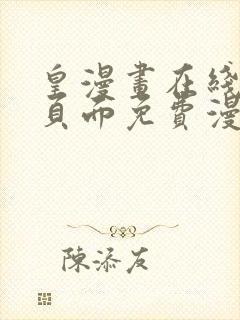 皇漫畫在綫
頁而免費漫
陳添友